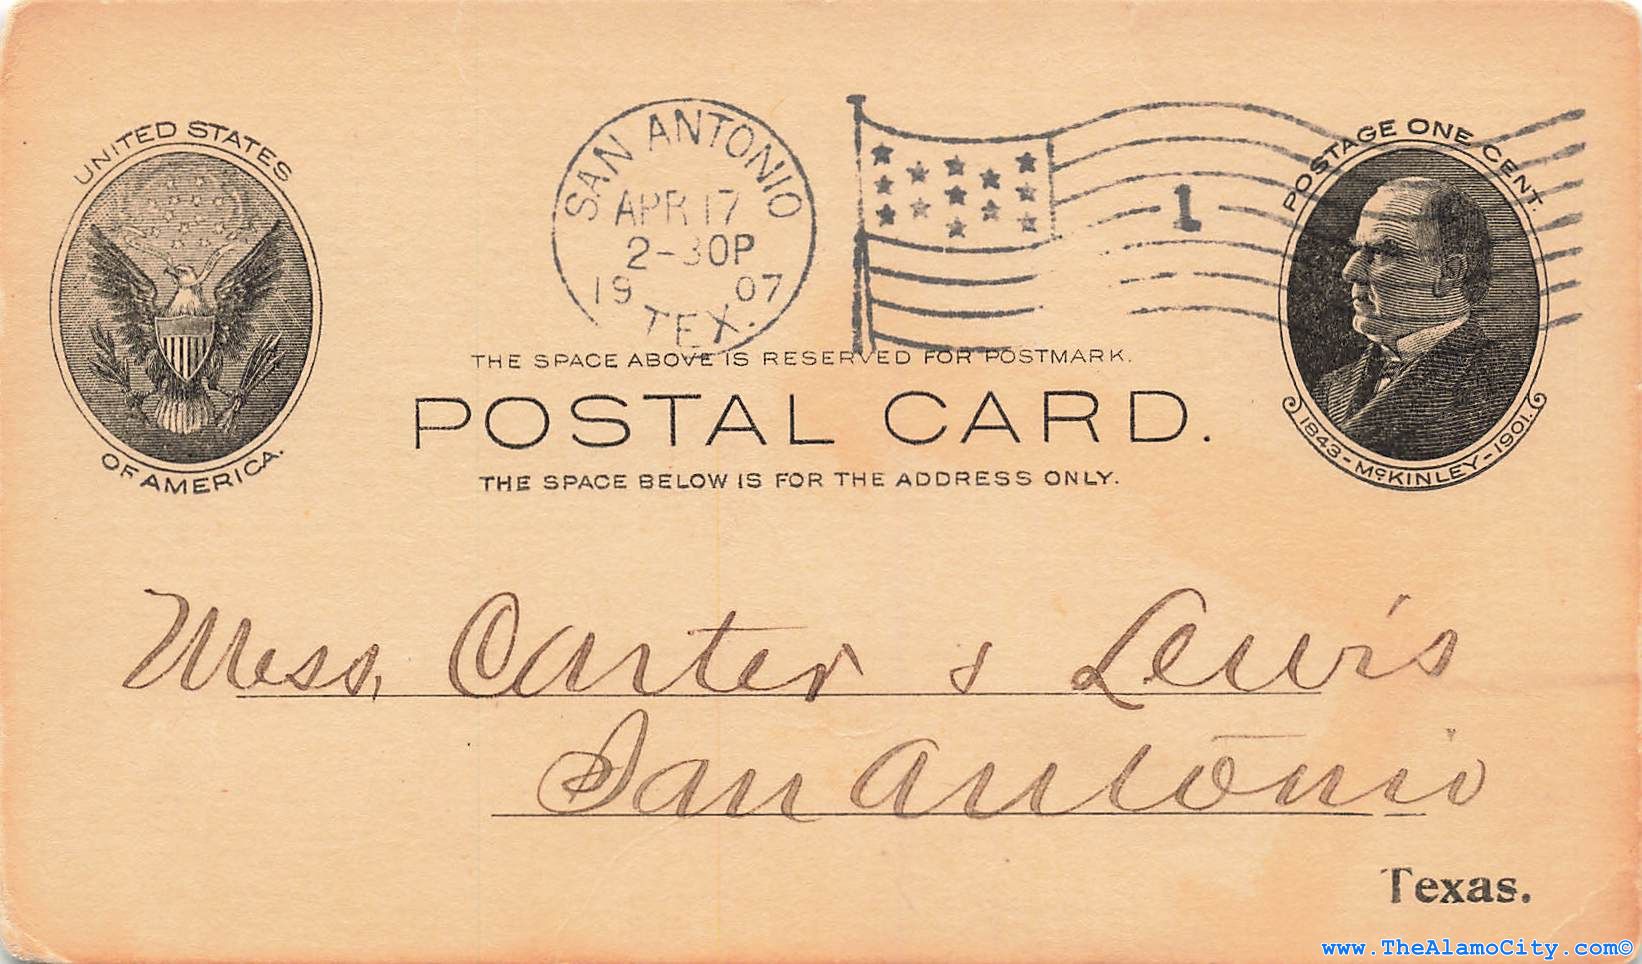 UNITED STATES
OF AMERICA.
SAN ANTONIO
APR 17
2-30P
19 07
TEX.
1
POSTAGE ONE CENT.
1843-McKINLEY-1901.
THE SPACE ABOVE IS RESERVED FOR POSTMARK.
POSTAL CARD.
THE SPACE BELOW IS FOR THE ADDRESS ONLY.
Mess, Carter & Lewis
San Antonio
Texas.
www.TheAlamoCity.com©